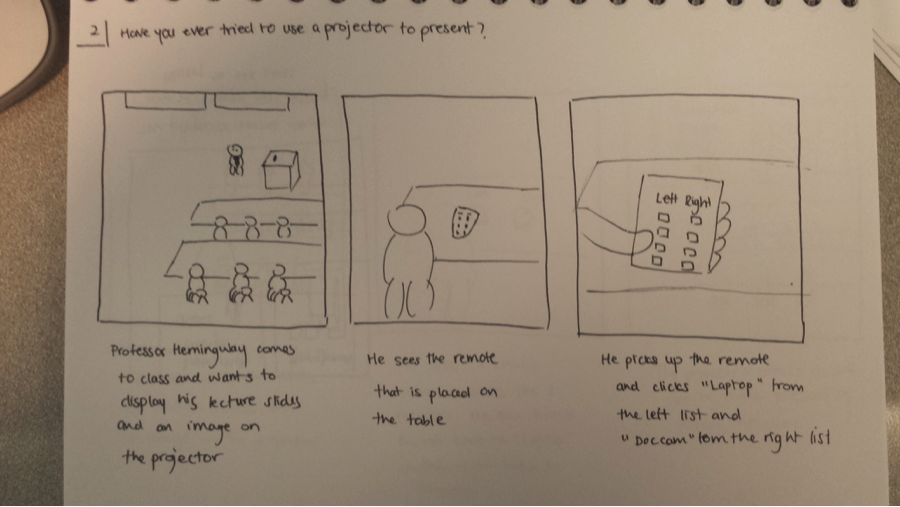 2
Have you ever tried to use a projector to present?
Left Right
Professor Hemingway comes
to class and wants to
display his lecture slides
and an image on
the projector
He sees the remote
that is placed on
the table
He picks up the remote
and clicks "Laptop" from
the left list and
"Doccam" from the right list